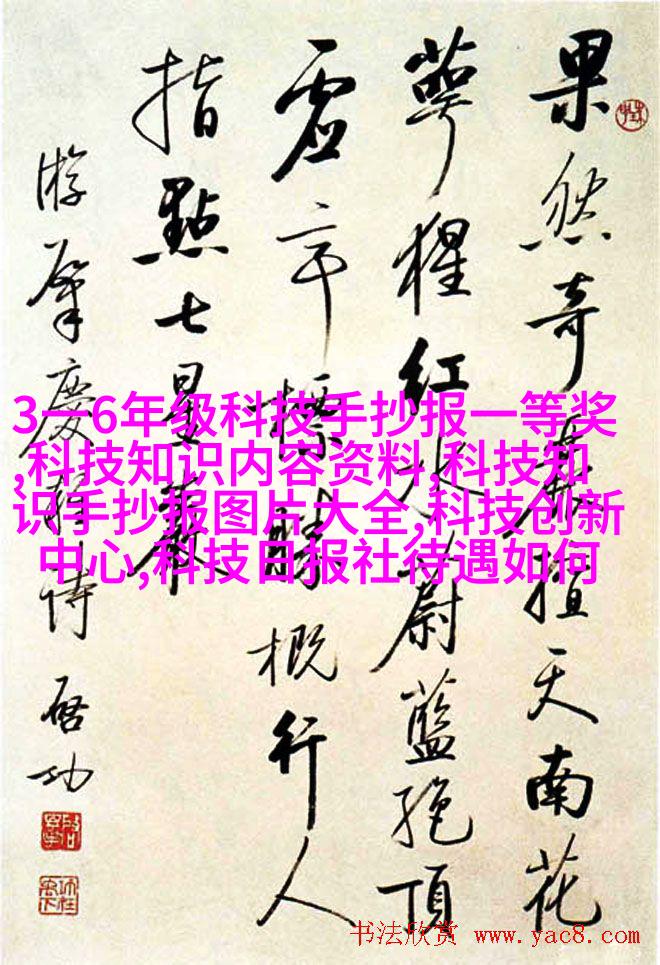 果然奇擅天南花
萼猩红水蔚藍絶頂
虚亭標勝概行人
指點七星巖
游肇慶詩 啓功
3一6年级科技手抄报一等奖
,科技知识内容资料,科技知
识手抄报图片大全,科技创新
中心,科技日报社待遇如何
书法欣赏 www.yac8.com